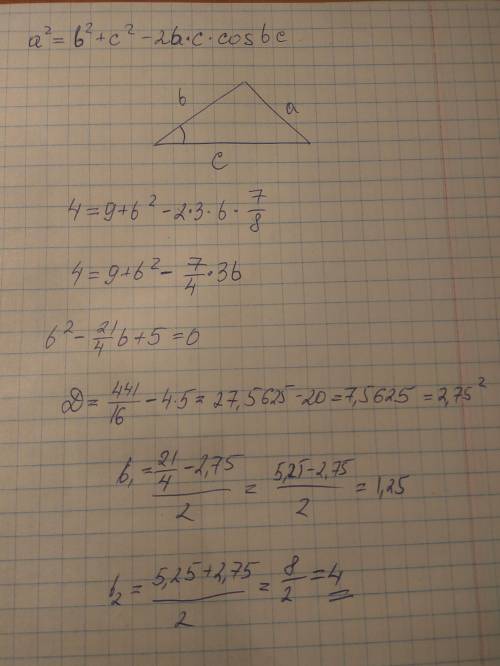 a² = b² + c² - 2b·c·cos bc
b
a
c
4 = 9 + b² - 2·3·b· 7/8
4 = 9 + b² - 7/4 · 3b
b² - 21/4 b + 5 = 0
D = 441/16 - 4·5 = 27,5625 - 20 = 7,5625 = 2,75²
b₁ = (21/4 - 2,75)/2 = (5,25 - 2,75)/2 = 1,25
b₂ = (5,25 + 2,75)/2 = 8/2 = 4